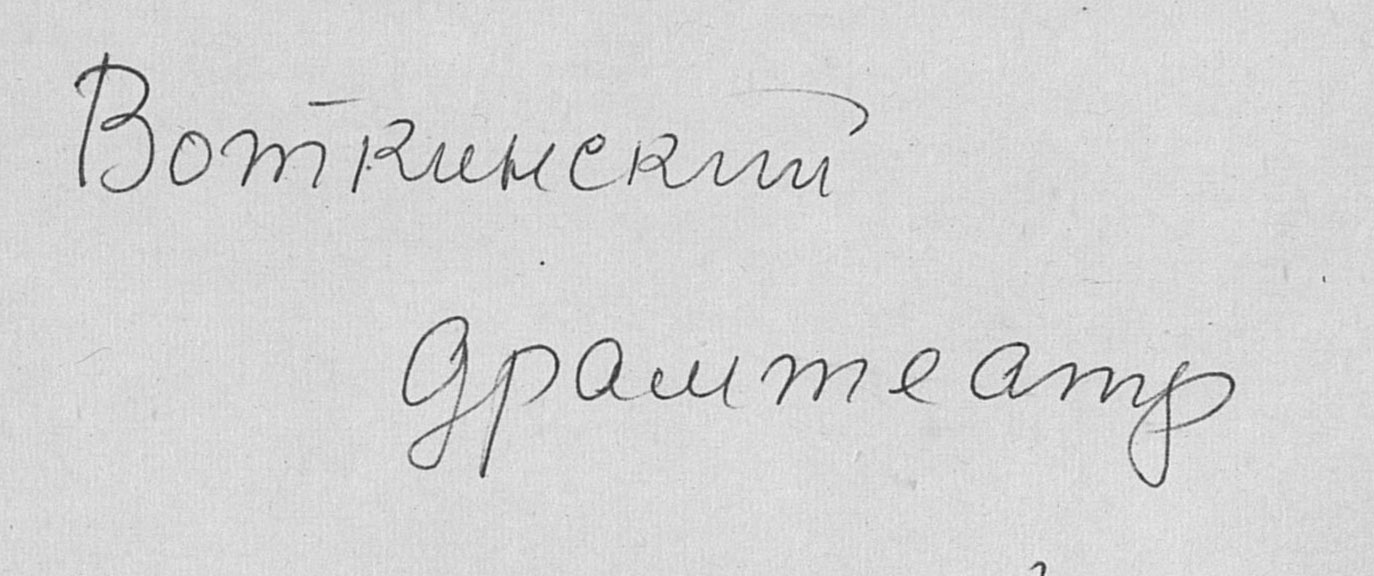 Воткинский
драмтеатр